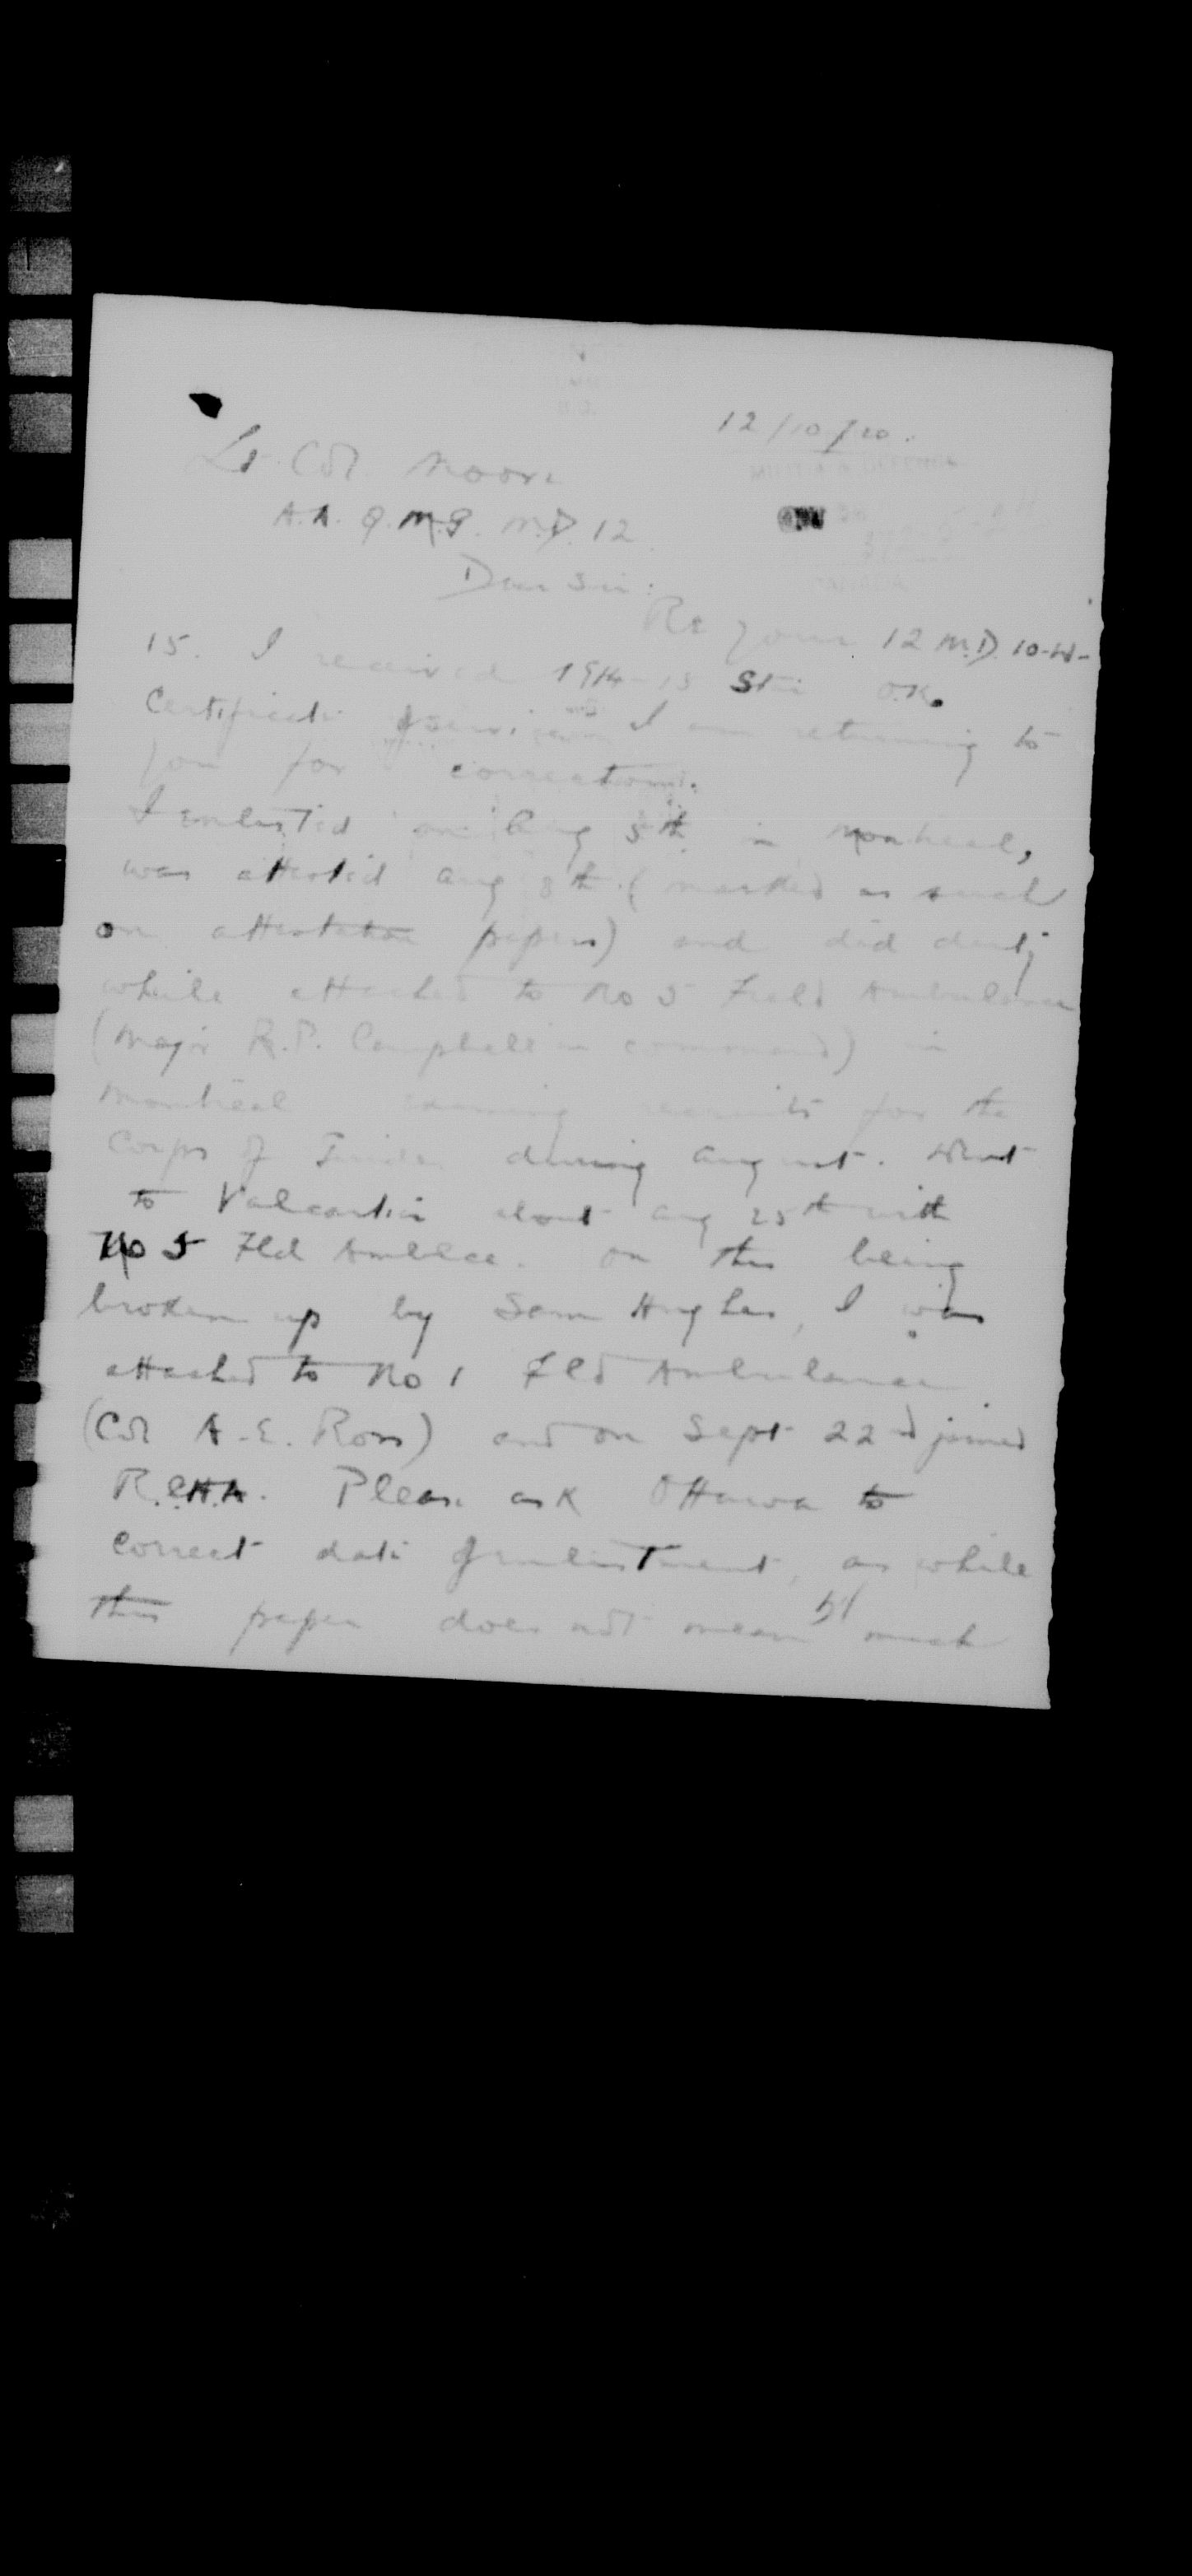 12/10/20.
Lt. Col. Moore
A.A.Q.M.G. M.D. 12
Dear Sir:
Re your 12 M.D. 10-W-
15. I received 1914-15 Star O.K.
Certificate of service I am returning to
you for correction.
I enlisted on Aug 5th in Montreal,
was attested Aug 8th (marked as such
on attestation papers) and did duty
while attached to No 5 Field Ambulance
(Major R.P. Campbell in command) in
Montreal recruits for the
Corps of Guides during August. Went
to Valcartier about Aug 25th with
No 5 Fld Amblce. On this being
broken up by Sam Hughes, I was
attached to No 1 Fld Ambulance
(Col A.E. Ross) and on Sept 22nd joined
R.C.H.A. Please ask Ottawa to
correct date of enlistment, as while
this paper does not mean much